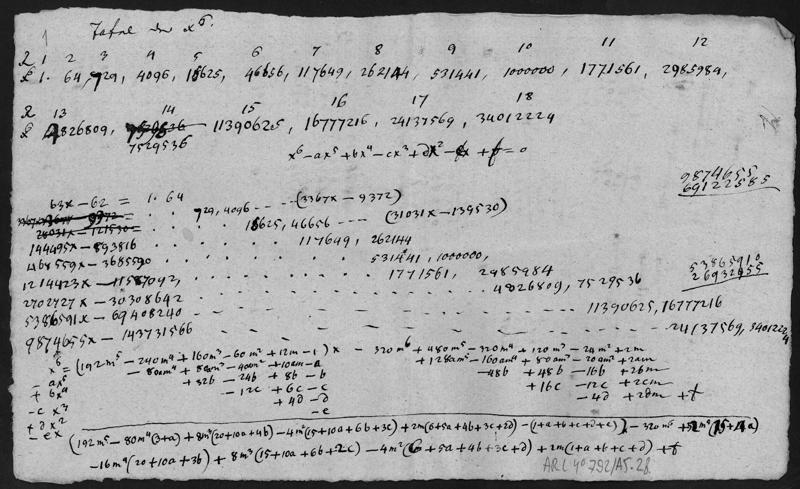 1 x⁶.
R 1 2 3 4 5 6 7 8 9 10 11 12
x⁶ 1. 64, 729, 4096, 15625, 46656, 117649, 262144, 531441, 1000000, 1771561, 2985984,
R 13 14 15 16 17 18
x⁶ 4826809, 11390625, 16777216, 24137569, 34012224
7529536
x⁶ - ax⁵ + bx⁴ - cx³ + dx² - ex + f = 0
9874655
69122585
63x - 62 = 1. 64
3367x - 9372 = . . 729, 4096 - - - - (3367x - 9372)
28031x - 121530 = . . . 15625, 46656 - - - - (31031x - 139530)
144495x - 893816 . . . . . . 117649, 262144
468559x - 3685590 . . . . . . . 531441, 1000000,
53865910
26932955
1214423x - 11587092, . . . . . . . 1771561, 2985984
2702727x - 30308642 . . . . . . . 4826809, 7529536
5386591x - 69408240 - - - - - - - 11390625, 16777216
9874655x - 143731566 - - - - - - - 24137569, 34012224
x⁶ = (192m⁵ - 240m⁴ + 160m³ - 60m² + 12m - 1) x - 320m⁶ + 480m⁵ - 320m⁴ + 120m³ - 24m² + 2m
- ax⁵ - 80am⁴ + 80am³ - 40am² + 10am - a + 128am⁵ - 160am⁴ + 80am³ - 20am² + 2am
+ bx⁴ + 32b - 24b + 8b - b - 48b + 48b - 16b + 2bm
- cx³ - 12c + 6c - c + 16c - 12c + 2cm
+ dx² + 4d - d - 4d + 2dm + f
- ex - e
(192m⁵ - 80m⁴(3+a) + 8m³(20+10a+4b) - 4m²(15+10a+6b+3c) + 2m(6+5a+4b+3c+2d) - (1+a+b+c+d+e)) x - 320m⁶ + 32m⁵(15+4a)
- 16m⁴(20+10a+3b) + 8m³(15+10a+6b+2c) - 4m²(6+5a+4b+3c+d) + 2m(1+a+b+c+d) + f
ARL 4° 792/A5.28.